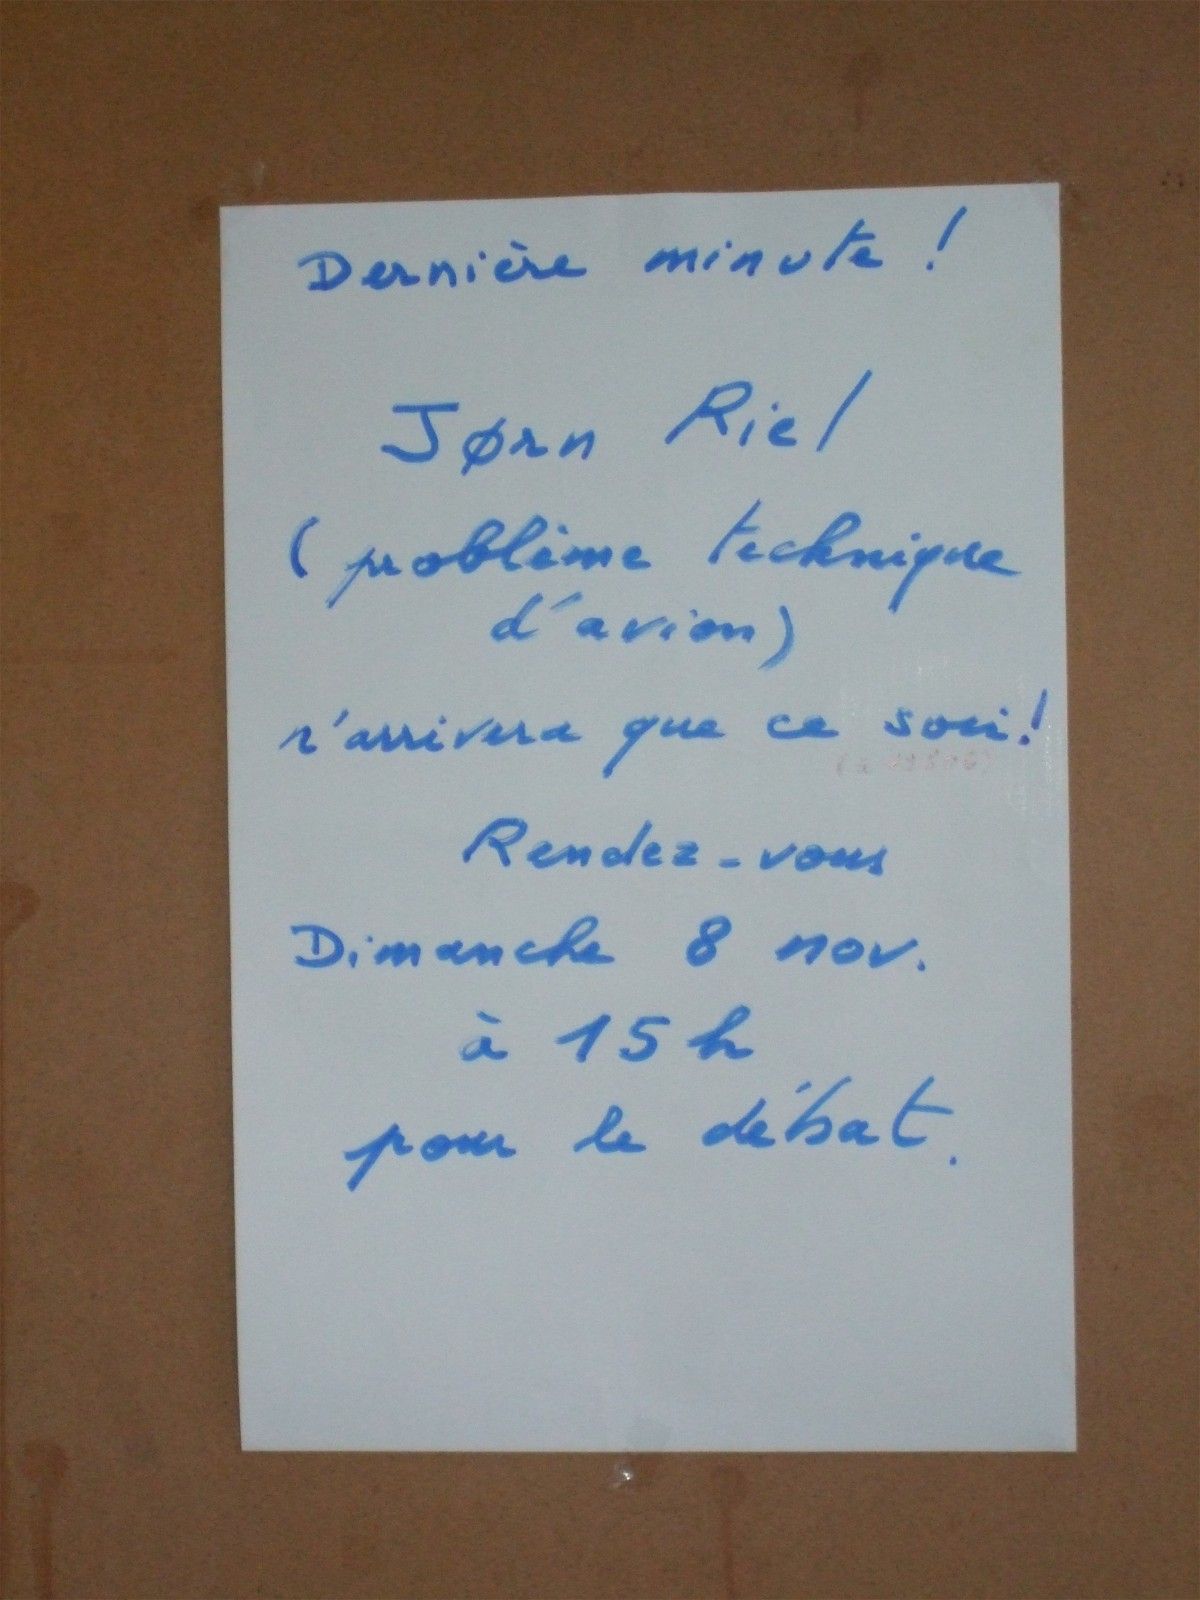 Dernière minute !
Jørn Riel
( problème technique
d'avion)
n'arrivera que ce soir!
Rendez-vous
Dimanche 8 nov.
à 15 h
pour le débat.